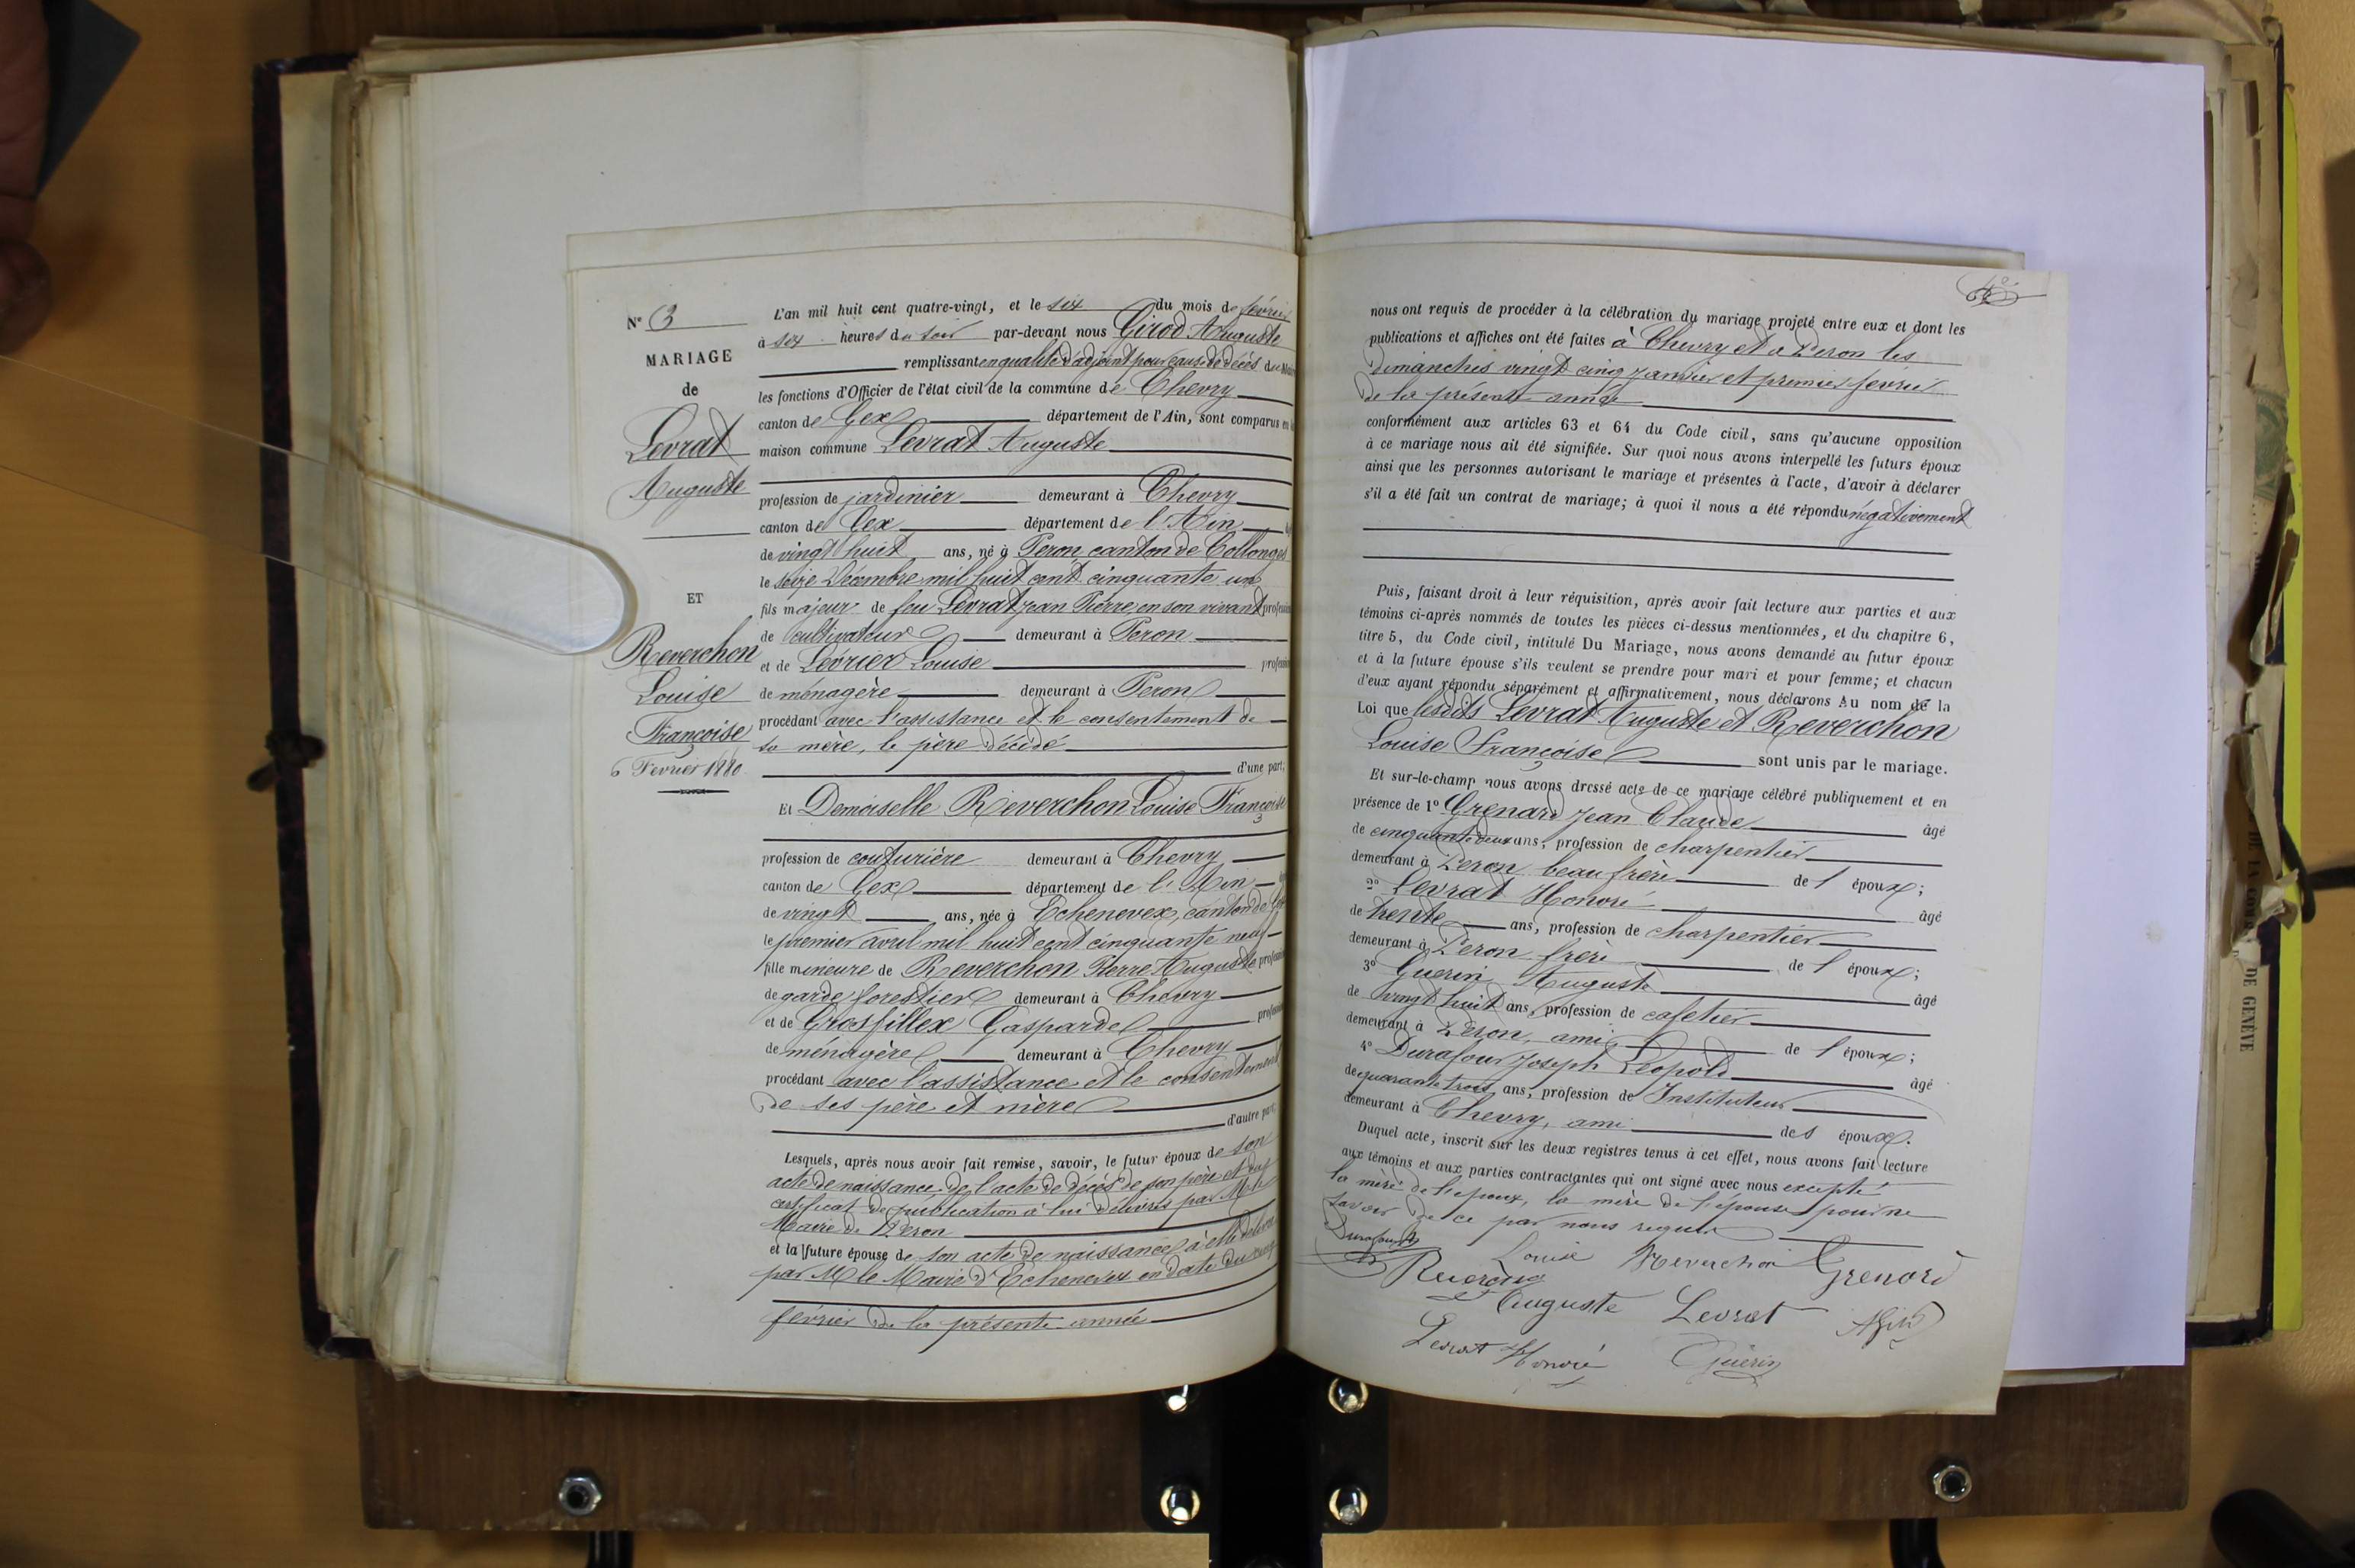 N° 3
MARIAGE
de
Levrat
Auguste
ET
Reverchon
Louise
Françoise
6 Février 1880
L'an mil huit cent quatre-vingt, et le six du mois de février
à six heures du soir par-devant nous Girod Auguste
remplissant en qualité d'adjoint pour cause de décès du Maire
les fonctions d'Officier de l'état civil de la commune de Chevry
canton de Gex département de l'Ain, sont comparus en la
maison commune Levrat Auguste
profession de jardinier demeurant à Chevry
canton de Gex département de l'Ain
de vingt huit ans, né à Peron, canton de Collonges
le seize Décembre mil huit cent cinquante un
fils majeur de feu Levrat Jean Pierre, en son vivant profession
de cultivateur demeurant à Peron
et de Lévrier Louise profession
de ménagère demeurant à Peron
procédant avec l'assistance et le consentement de
sa mère, le père décédé
d'une part,
Et Demoiselle Reverchon Louise Françoise
profession de couturière demeurant à Chevry
canton de Gex département de l'Ain
de vingt ans, née à Echenevex, canton de Gex
le premier avril mil huit cent cinquante neuf
fille mineure de Reverchon Pierre Auguste profession
de garde forestier demeurant à Chevry
et de Grosfillex Gasparde profession
de ménagère demeurant à Chevry
procédant avec l'assistance et le consentement
de ses père et mère
d'autre part,
Lesquels, après nous avoir fait remise, savoir, le futur époux de son
acte de naissance, de l'acte de décès de son père et du
certificat de publication à lui délivrés par M. le
Maire de Peron
et la future épouse de son acte de naissance à elle délivré
par M le Maire d'Echenevex en date du
février de la présente année
nous ont requis de procéder à la célébration du mariage projeté entre eux et dont les
publications et affiches ont été faites à Chevry et à Peron les
dimanches vingt cinq janvier et premier février
de la présente année
conformément aux articles 63 et 64 du Code civil, sans qu'aucune opposition
à ce mariage nous ait été signifiée. Sur quoi nous avons interpellé les futurs époux
ainsi que les personnes autorisant le mariage et présentes à l'acte, d'avoir à déclarer
s'il a été fait un contrat de mariage; à quoi il nous a été répondu négativement
Puis, faisant droit à leur réquisition, après avoir fait lecture aux parties et aux
témoins ci-après nommés de toutes les pièces ci-dessus mentionnées, et du chapitre 6,
titre 5, du Code civil, intitulé Du Mariage, nous avons demandé au futur époux
et à la future épouse s'ils veulent se prendre pour mari et pour femme; et chacun
d'eux ayant répondu séparément et affirmativement, nous déclarons Au nom de la
Loi que lesdits Levrat Auguste et Reverchon
Louise Françoise sont unis par le mariage.
Et sur-le-champ nous avons dressé acte de ce mariage célébré publiquement et en
présence de 1° Grenard Jean Claude âgé
de cinquante deux ans, profession de charpentier
demeurant à Peron beau frère de l'époux;
2° Levrat Honoré âgé
de trente ans, profession de charpentier
demeurant à Peron frère de l'époux;
3° Guerin Auguste âgé
de vingt huit ans, profession de cafetier
demeurant à Peron, ami de l'époux;
4° Durafour Joseph Léopold âgé
de quarante trois ans, profession de Instituteur
demeurant à Chevry, ami des époux.
Duquel acte, inscrit sur les deux registres tenus à cet effet, nous avons fait lecture
aux témoins et aux parties contractantes qui ont signé avec nous excepté
la mère de l'époux, la mère de l'épouse pour ne
savoir de ce par nous requis
Durafour
Louise Reverchon Grenard
Auguste Levrat
Levrat Honoré Guérin
DE GENÈVE